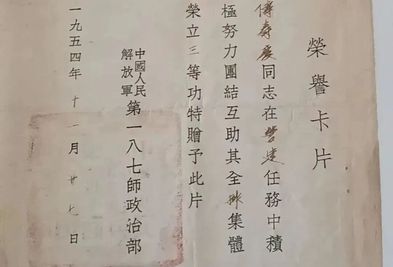 榮譽卡片
傅壽慶同志在營建任務中積
極努力團結互助其全排集體
榮立三等功特贈予此片
中國人民
解放軍
第一八七師政治部
一九五四年十一月廿七日